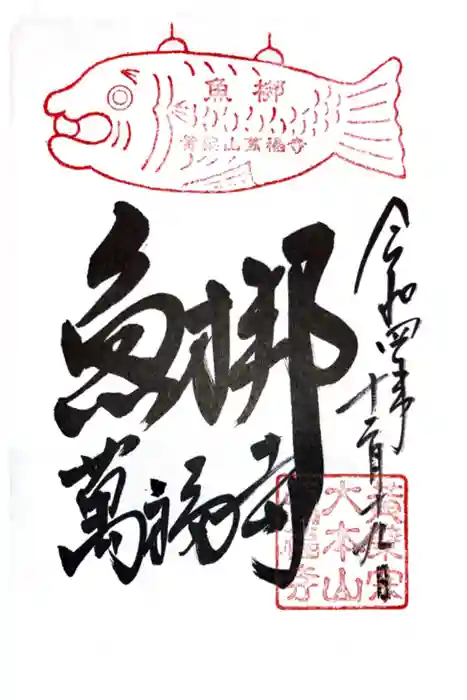 魚梆
黄檗山萬福寺
魚梆
萬福寺
令和四年十二月十九日
黄檗宗
大本山
萬福寺